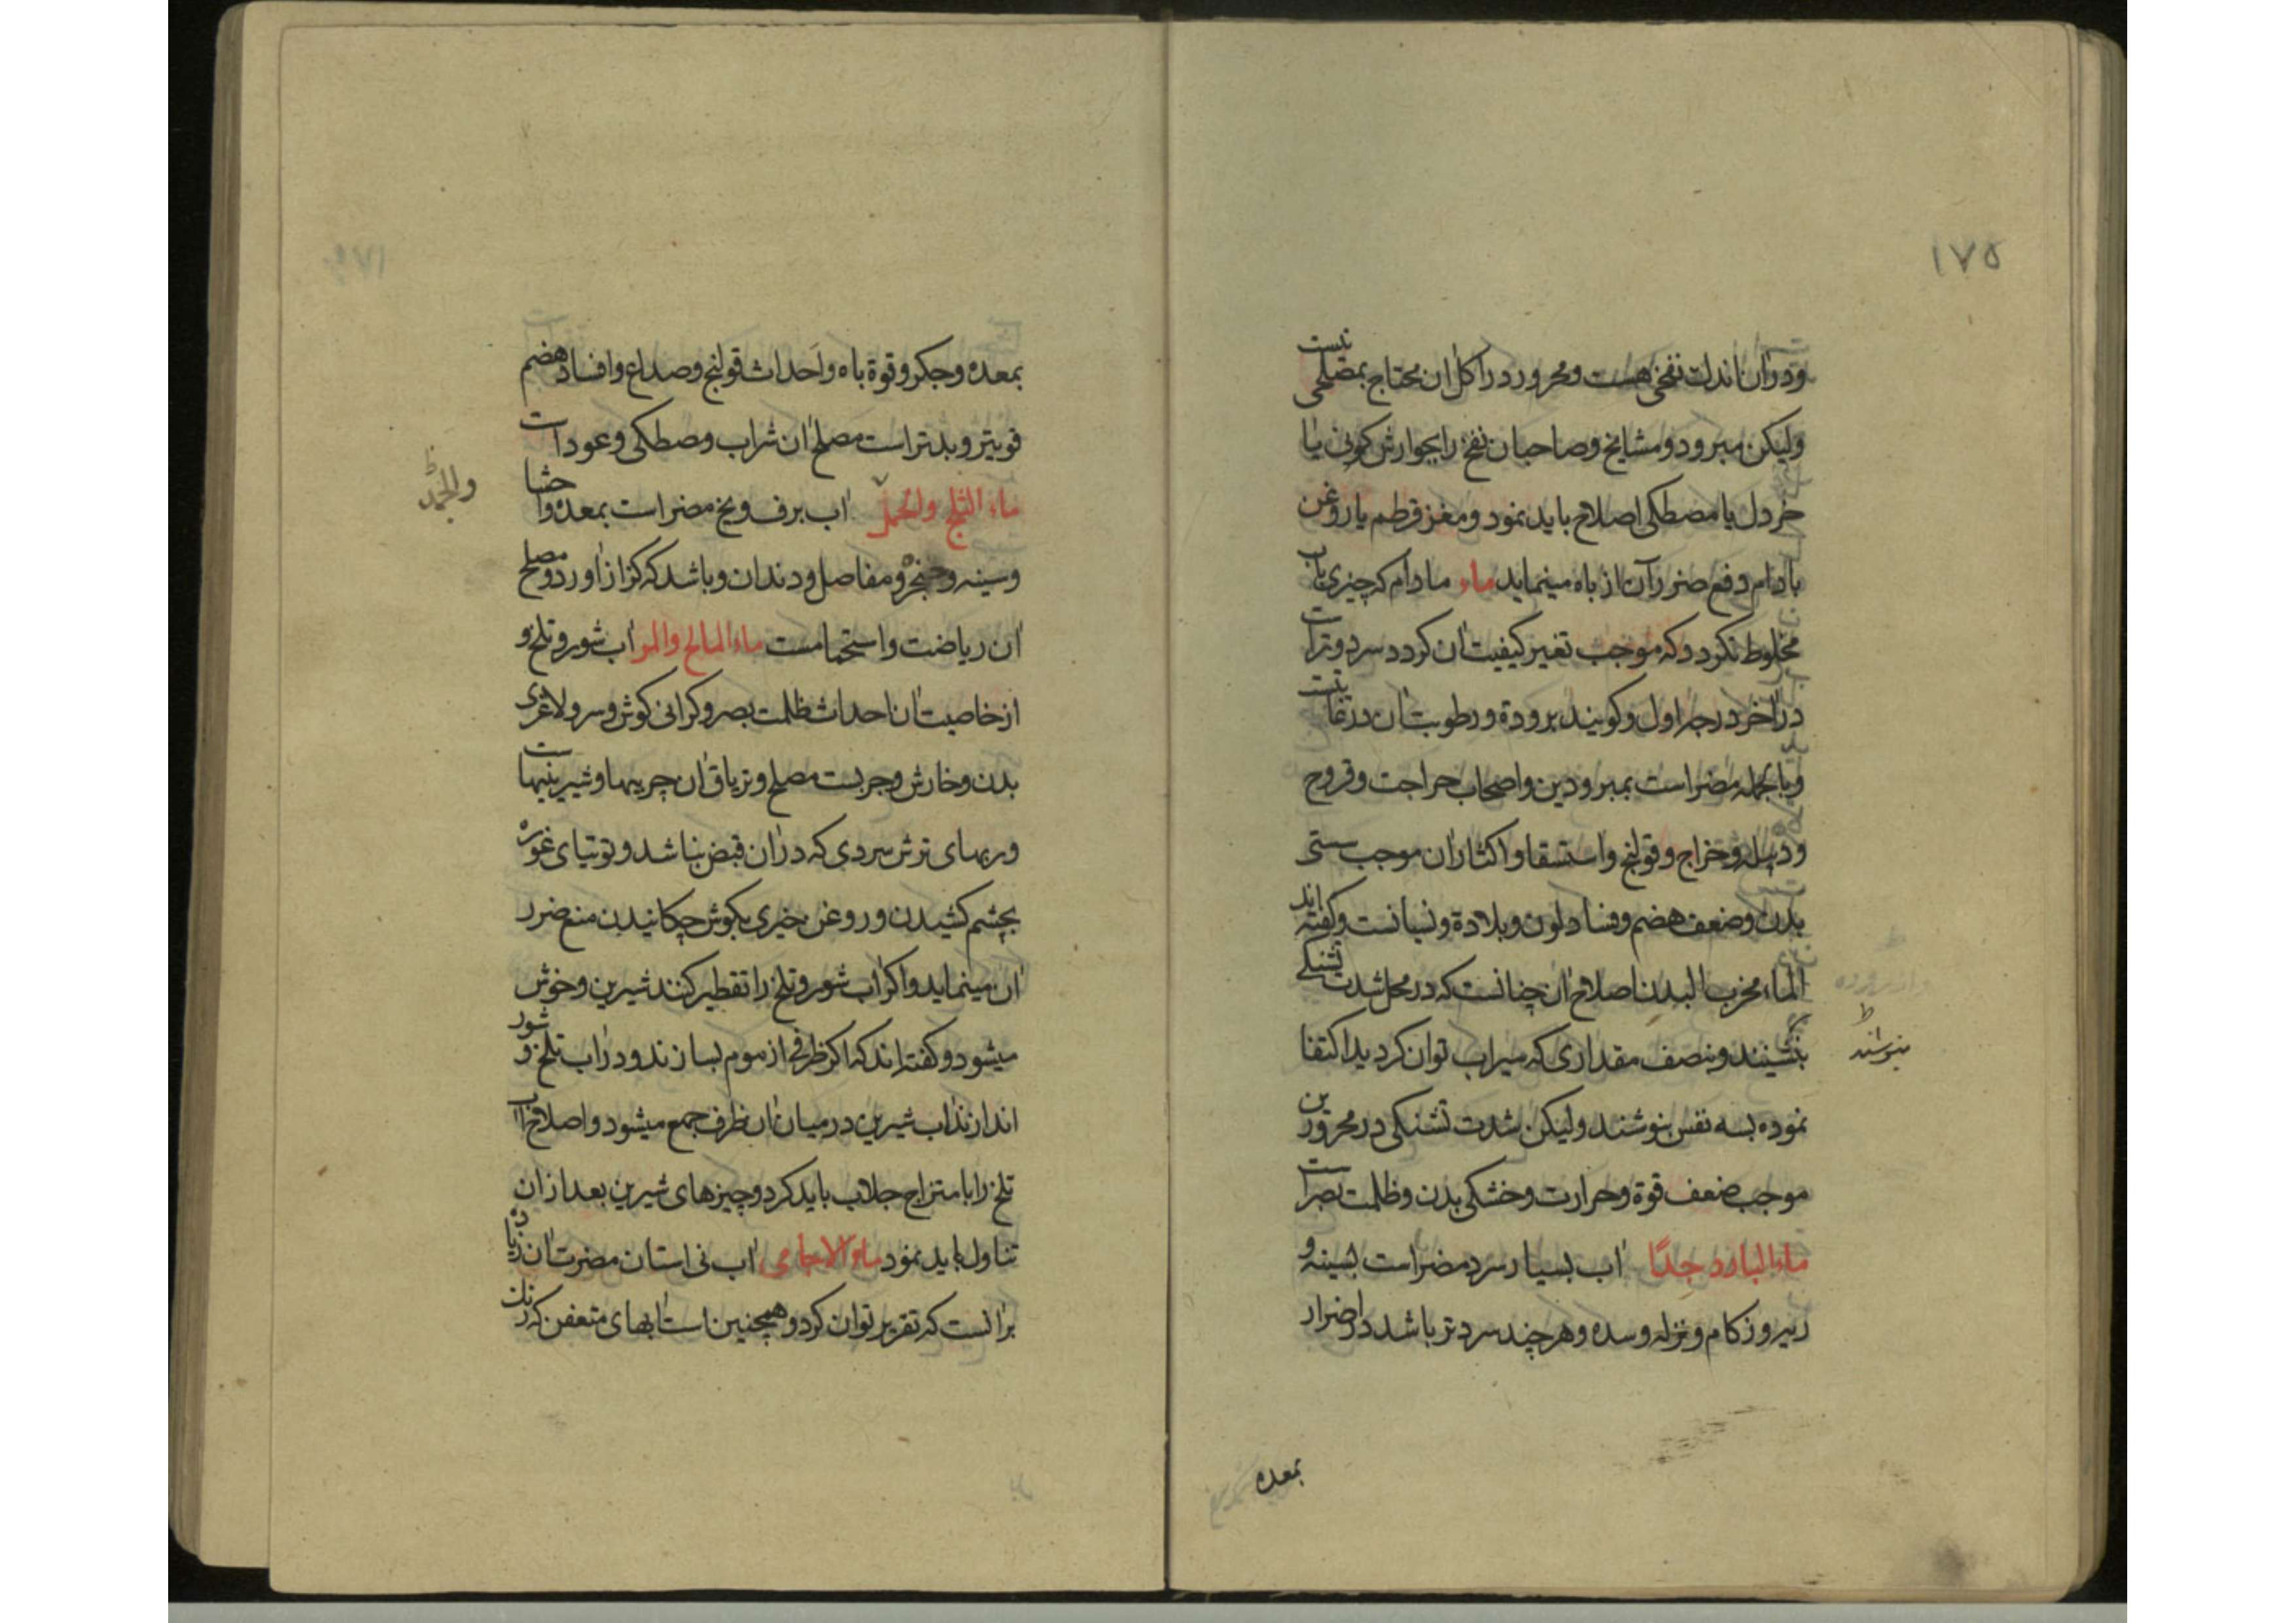 ١٧٥
ودوان اندک نفخی هست ومحرور در اکل ان محتاج بمصلحی نیست
ولیکن مبرود ومشایخ وصاحبان نفخ را بجوارش کمونی یا
خردل یا مصطکی اصلاح باید نمود ومغز قرطم یا روغن
بادام دفع ضرر آن از باه مینماید ماء مادام که چیزی باب
مخلوط نکردد که موجب تغیر کیفیت ان کردد سرد وتر است
در اخر درجه اول وکویند برودة ورطوبت ان در
وبالجمله مضر است بمبرودین واصحاب جراحت وقروح
ودبیله وخراج وقولنج واستسقا واکثار ان موجب سستی
بدن وضعف هضم وفساد لون وبلادة ونسیانست وکفته اند
الماء مخرب البدن اصلاح ان چنانست که در محل شدت تشنکی
بنشینند وبنصف مقداری که سیراب توان کردید اکتفا
بنوشند
نموده بسه نفس بنوشند ولیکن شدت تشنکی در محرورین
موجب ضعف قوة وحرارت وخشکی بدن وظلمت بصر است
ماء البارد جدًا اب بسیار سرد مضر است بسینه و
ریه وزکام ونزله وسده وهر چند سردتر باشد در اضرار
بمعده
بمعده وجکر وقوة باه واحداث قولنج وصداع وافساد هضم
قویتر وبدتر است مصلح ان شراب ومصطکی وعود است
ماء الثلج والجمد اب برف ویخ مضر است بمعده واحشا
والجمد
وسینه وحنجره ومفاصل ودندان وباشد که کزاز اورد ومصلح
ان ریاضت واستحمامست ماء المالح والمر اب شور وتلخ و
از خاصیت ان احداث ظلمت بصر وکرانی کوش وسر ولاغری
بدن وخارش وجربست مصلح وتریاق ان چربیها وشیرینیهاست
وربهای ترش سردی که دران قبض نباشد وتوتیای غوره
بچشم کشیدن وروغن خیری بکوش چکانیدن منع ضرر
ان مینماید واکر اب شور وتلخ را تقطیر کنند شیرین وخوش
میشود وکفته اند که اکر ظرفی از موم بسازند ودر اب تلخ و شور
اندازند اب شیرین در میان ان ظرف جمع میشود واصلاح اب
تلخ را بامتزاج جلاب باید کرد وچیزهای شیرین بعد ازان
تناول باید نمود ماء الاجامی اب نی استان مضرت ان زیاده
بر انست که تقریر توان کرد وهمچنین است ابهای متعفن که رنک